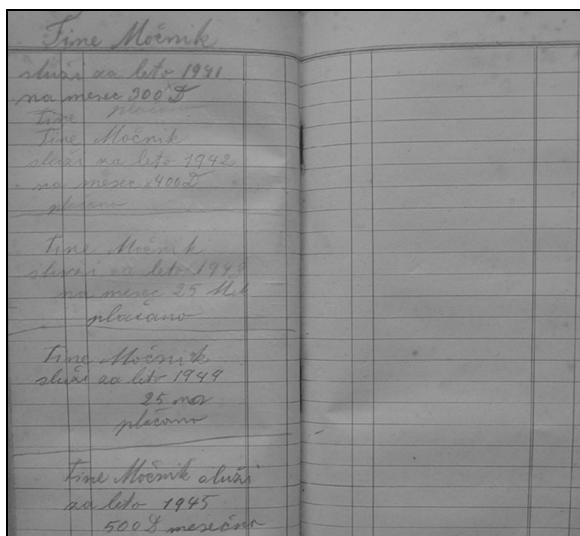 Tine Močnik
služi za leto 1941
na mesec 300 D
plačano
Tine
Tine Močnik
služi za leto 1942
na mesec 400 D
plačano
Tine Močnik
služi za leto 1943
na mesec 25 M
plačano
Tine Močnik
služi za leto 1944
25 mr
plačano
Tine Močnik služi
za leto 1945
500 D mesečno